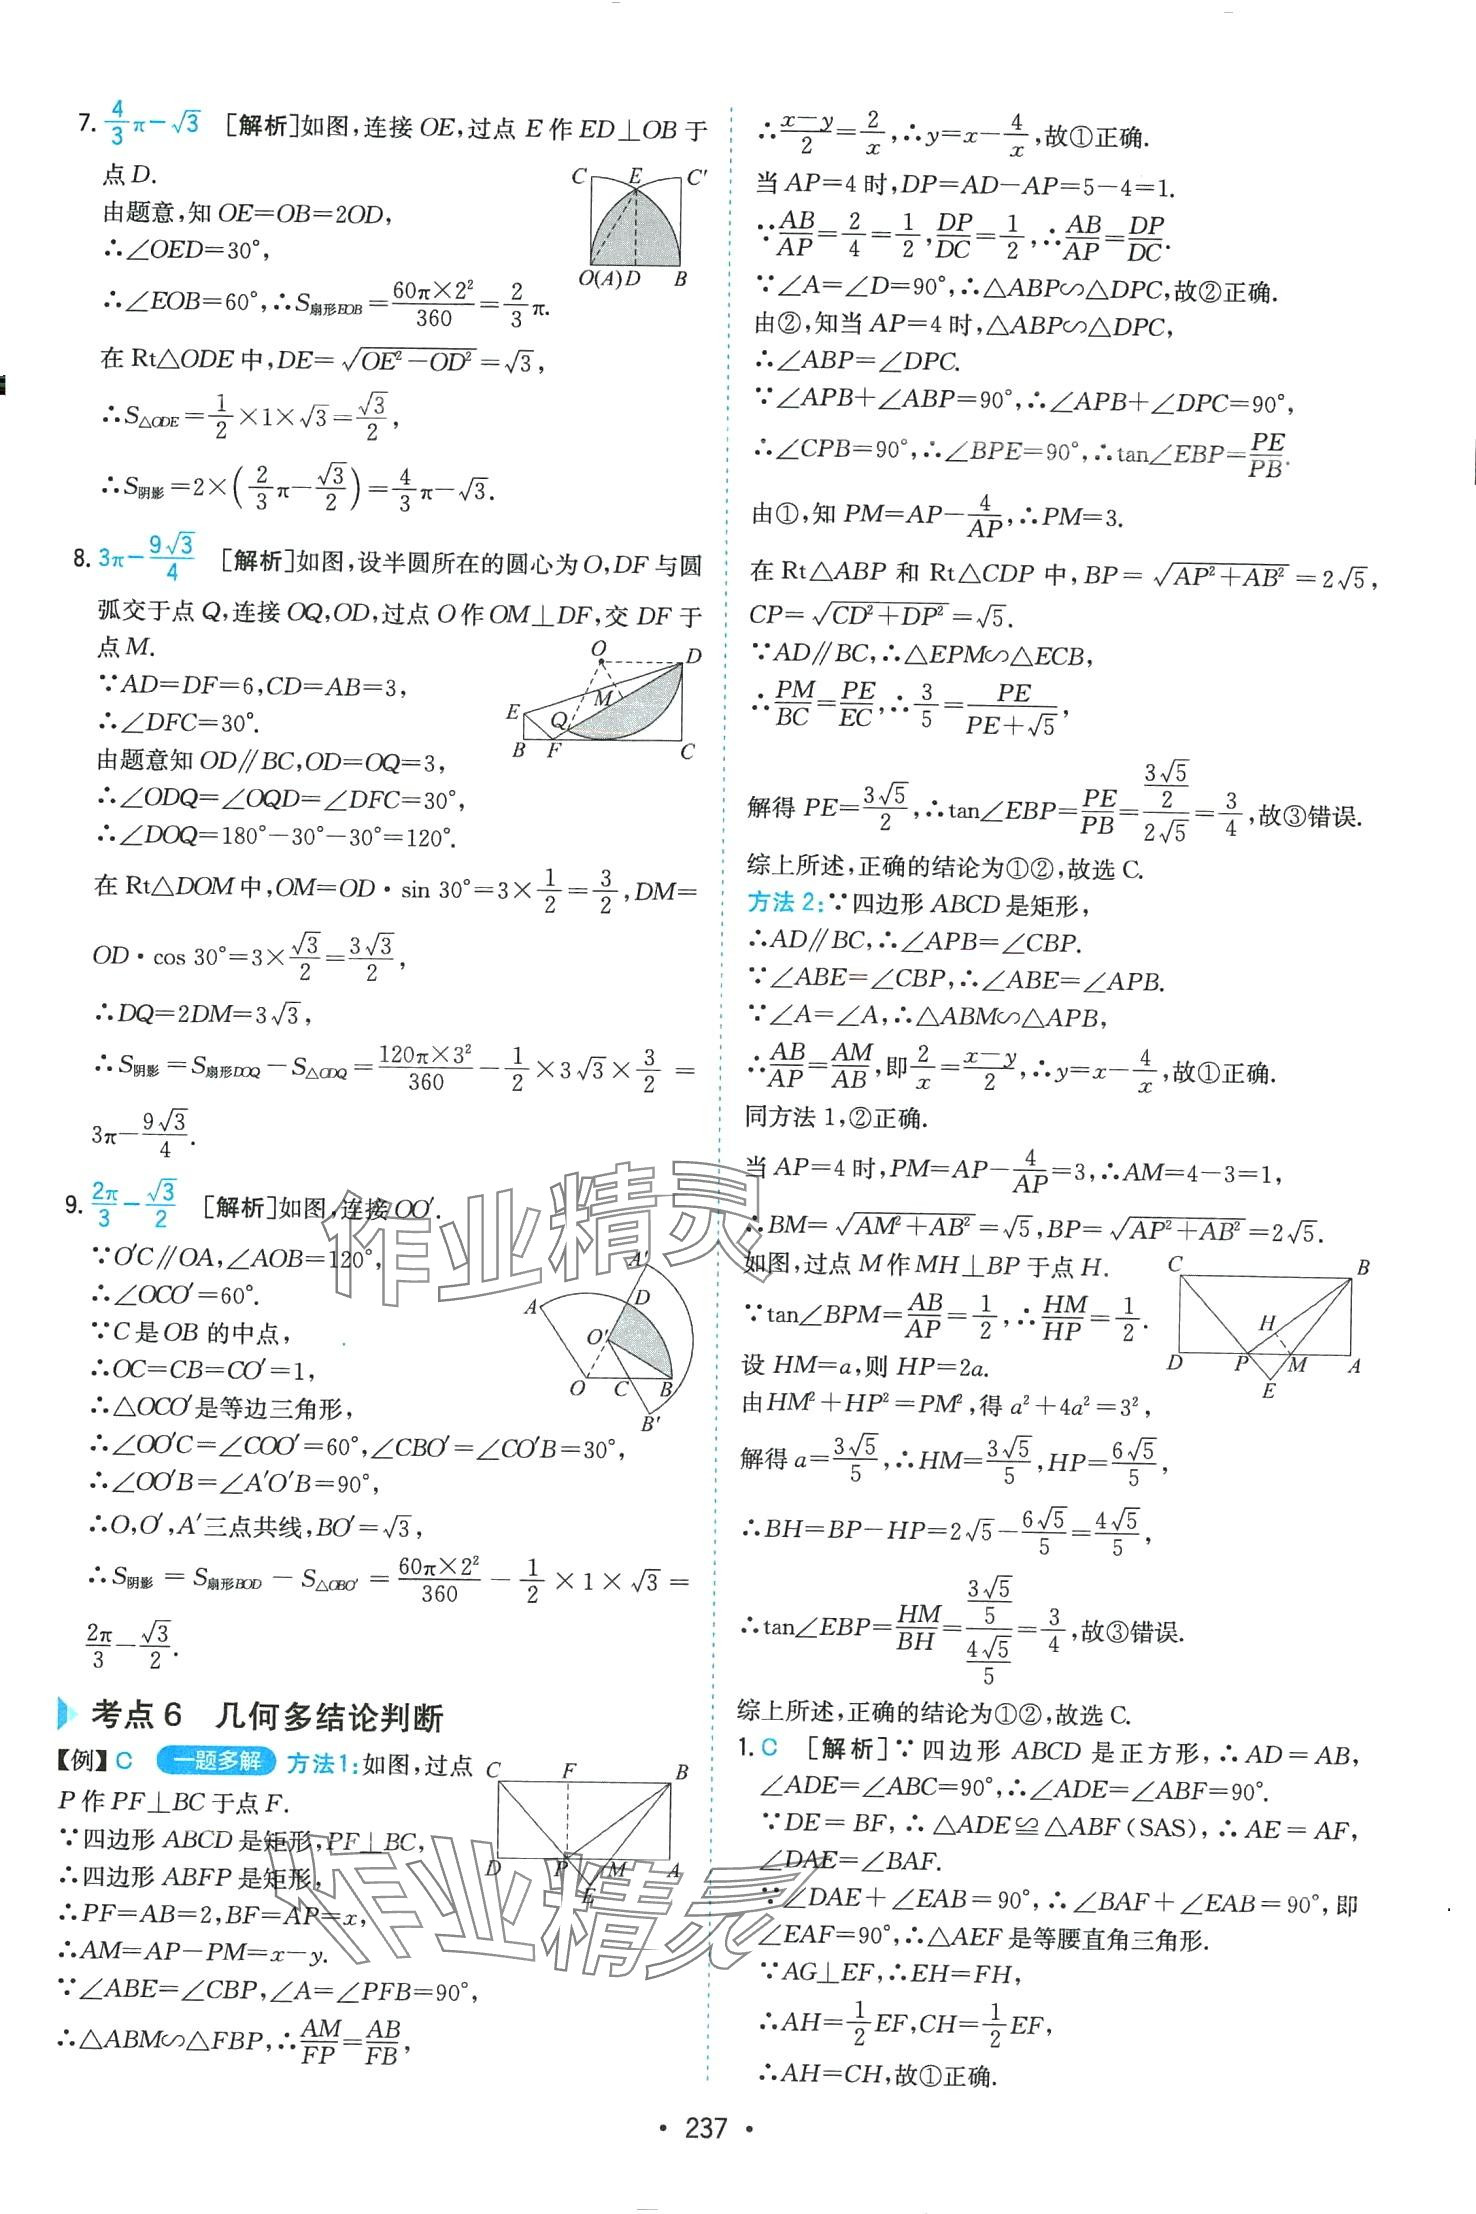 7. 4/3π-√3 [解析]如图,连接OE,过点E作ED⊥OB于
点D.
由题意,知OE=OB=2OD,
∴∠OED=30°,
∴∠EOB=60°,∴S扇形EOB=60π×2²/360=2/3π.
在Rt△ODE中,DE=√(OE²-OD²)=√3,
∴S△ODE=1/2×1×√3=√3/2,
∴S阴影=2×(2/3π-√3/2)=4/3π-√3.
C E C′
O(A) D B
8. 3π-9√3/4 [解析]如图,设半圆所在的圆心为O,DF与圆
弧交于点Q,连接OQ,OD,过点O作OM⊥DF,交DF于
点M.
∵AD=DF=6,CD=AB=3,
∴∠DFC=30°.
由题意知OD∥BC,OD=OQ=3,
∴∠ODQ=∠OQD=∠DFC=30°,
∴∠DOQ=180°-30°-30°=120°.
O D
M
E Q
B F C
在Rt△DOM中,OM=OD·sin 30°=3×1/2=3/2,DM=
OD·cos 30°=3×√3/2=3√3/2,
∴DQ=2DM=3√3,
∴S阴影=S扇形DOQ-S△ODQ=120π×3²/360-1/2×3√3×3/2=
3π-9√3/4.
9. 2π/3-√3/2 [解析]如图,连接OO′.
∵O′C∥OA,∠AOB=120°,
∴∠OCO′=60°.
∵C是OB的中点,
∴OC=CB=CO′=1,
∴△OCO′是等边三角形,
∴∠OO′C=∠COO′=60°,∠CBO′=∠CO′B=30°,
∴∠OO′B=∠A′O′B=90°,
∴O,O′,A′三点共线,BO′=√3,
∴S阴影=S扇形BOD-S△OBO′=60π×2²/360-1/2×1×√3=
2π/3-√3/2.
A′
A D
O′
O C B
B′
考点6 几何多结论判断
【例】C 一题多解 方法1:如图,过点
P作PF⊥BC于点F.
∵四边形ABCD是矩形,PF⊥BC,
∴四边形ABFP是矩形,
∴PF=AB=2,BF=AP=x,
∴AM=AP-PM=x-y.
∵∠ABE=∠CBP,∠A=∠PFB=90°,
∴△ABM∽△FBP,∴AM/FP=AB/FB,
C F B
D P M A
E
∴(x-y)/2=2/x,∴y=x-4/x,故①正确.
当AP=4时,DP=AD-AP=5-4=1.
∵AB/AP=2/4=1/2,DP/DC=1/2,∴AB/AP=DP/DC.
∵∠A=∠D=90°,∴△ABP∽△DPC,故②正确.
由②,知当AP=4时,△ABP∽△DPC,
∴∠ABP=∠DPC.
∵∠APB+∠ABP=90°,∴∠APB+∠DPC=90°,
∴∠CPB=90°,∴∠BPE=90°,∴tan∠EBP=PE/PB.
由①,知PM=AP-4/AP,∴PM=3.
在Rt△ABP和Rt△CDP中,BP=√(AP²+AB²)=2√5,
CP=√(CD²+DP²)=√5.
∵AD∥BC,∴△EPM∽△ECB,
∴PM/BC=PE/EC,∴3/5=PE/(PE+√5),
解得PE=3√5/2,∴tan∠EBP=PE/PB=(3√5/2)/(2√5)=3/4,故③错误.
综上所述,正确的结论为①②,故选C.
方法2:∵四边形ABCD是矩形,
∴AD∥BC,∴∠APB=∠CBP.
∵∠ABE=∠CBP,∴∠ABE=∠APB.
∵∠A=∠A,∴△ABM∽△APB,
∴AB/AP=AM/AB,即2/x=(x-y)/2,∴y=x-4/x,故①正确.
同方法1,②正确.
当AP=4时,PM=AP-4/AP=3,∴AM=4-3=1,
∴BM=√(AM²+AB²)=√5,BP=√(AP²+AB²)=2√5.
如图,过点M作MH⊥BP于点H.
∵tan∠BPM=AB/AP=1/2,∴HM/HP=1/2.
设HM=a,则HP=2a.
由HM²+HP²=PM²,得a²+4a²=3²,
C B
H
D P M A
E
解得a=3√5/5,∴HM=3√5/5,HP=6√5/5,
∴BH=BP-HP=2√5-6√5/5=4√5/5,
∴tan∠EBP=HM/BH=(3√5/5)/(4√5/5)=3/4,故③错误.
综上所述,正确的结论为①②,故选C.
1. C [解析]∵四边形ABCD是正方形,∴AD=AB,
∠ADE=∠ABC=90°,∴∠ADE=∠ABF=90°.
∵DE=BF,∴△ADE≌△ABF(SAS),∴AE=AF,
∠DAE=∠BAF.
∵∠DAE+∠EAB=90°,∴∠BAF+∠EAB=90°,即
∠EAF=90°,∴△AEF是等腰直角三角形.
∵AG⊥EF,∴EH=FH,
∴AH=1/2EF,CH=1/2EF,
∴AH=CH,故①正确.
作业精灵
作业精灵
• 237 •